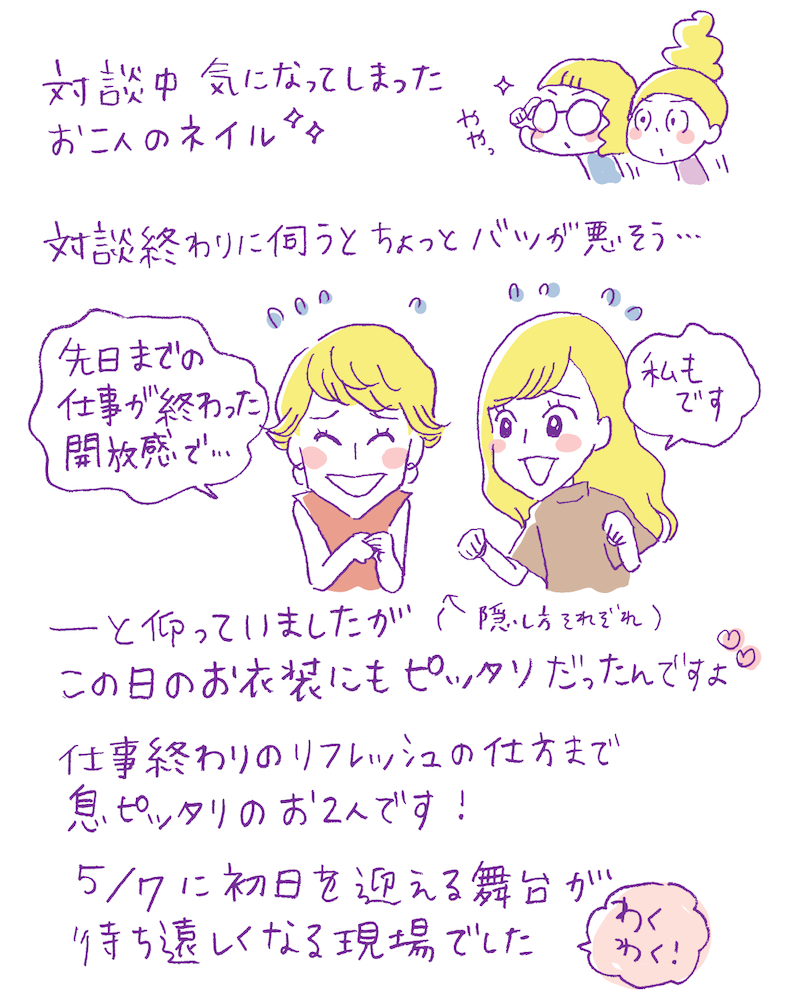 対談中 気になってしまった
お二人のネイル
ややっ
対談終わりに伺うとちょっとバツが悪そう…
先日までの
仕事が終わった
開放感で…
私も
です
ーと仰っていましたが(↑隠し方それぞれ)
この日のお衣装にもピッタリだったんですよ
仕事終わりのリフレッシュの仕方まで
息ピッタリのお2人です!
5/7に初日を迎える舞台が
待ち遠しくなる現場でした
わく
わく!